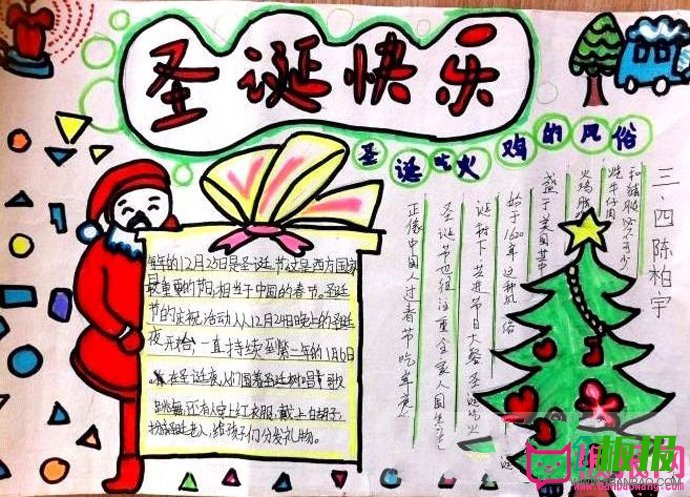 圣诞快乐
圣诞吃火鸡的风俗
三、四陈柏宇
每年的12月25日是圣诞节,这是西方国家
最重要的节日,相当于中国的春节。圣诞
节的庆祝活动从12月24日晚上的圣诞
夜开始,一直持续至第二年的1月6日
在圣诞夜,人们围着圣诞树唱歌
跳舞,还有人穿上红衣服,戴上白胡子,
扮演圣诞老人,给孩子们分发礼物。
火鸡
盛于美国其中
始于1620年这种风俗
诞树下共进节日大餐圣诞吃火
圣诞节也很注重全家人围坐在
正像中国人过春节吃年
板报网